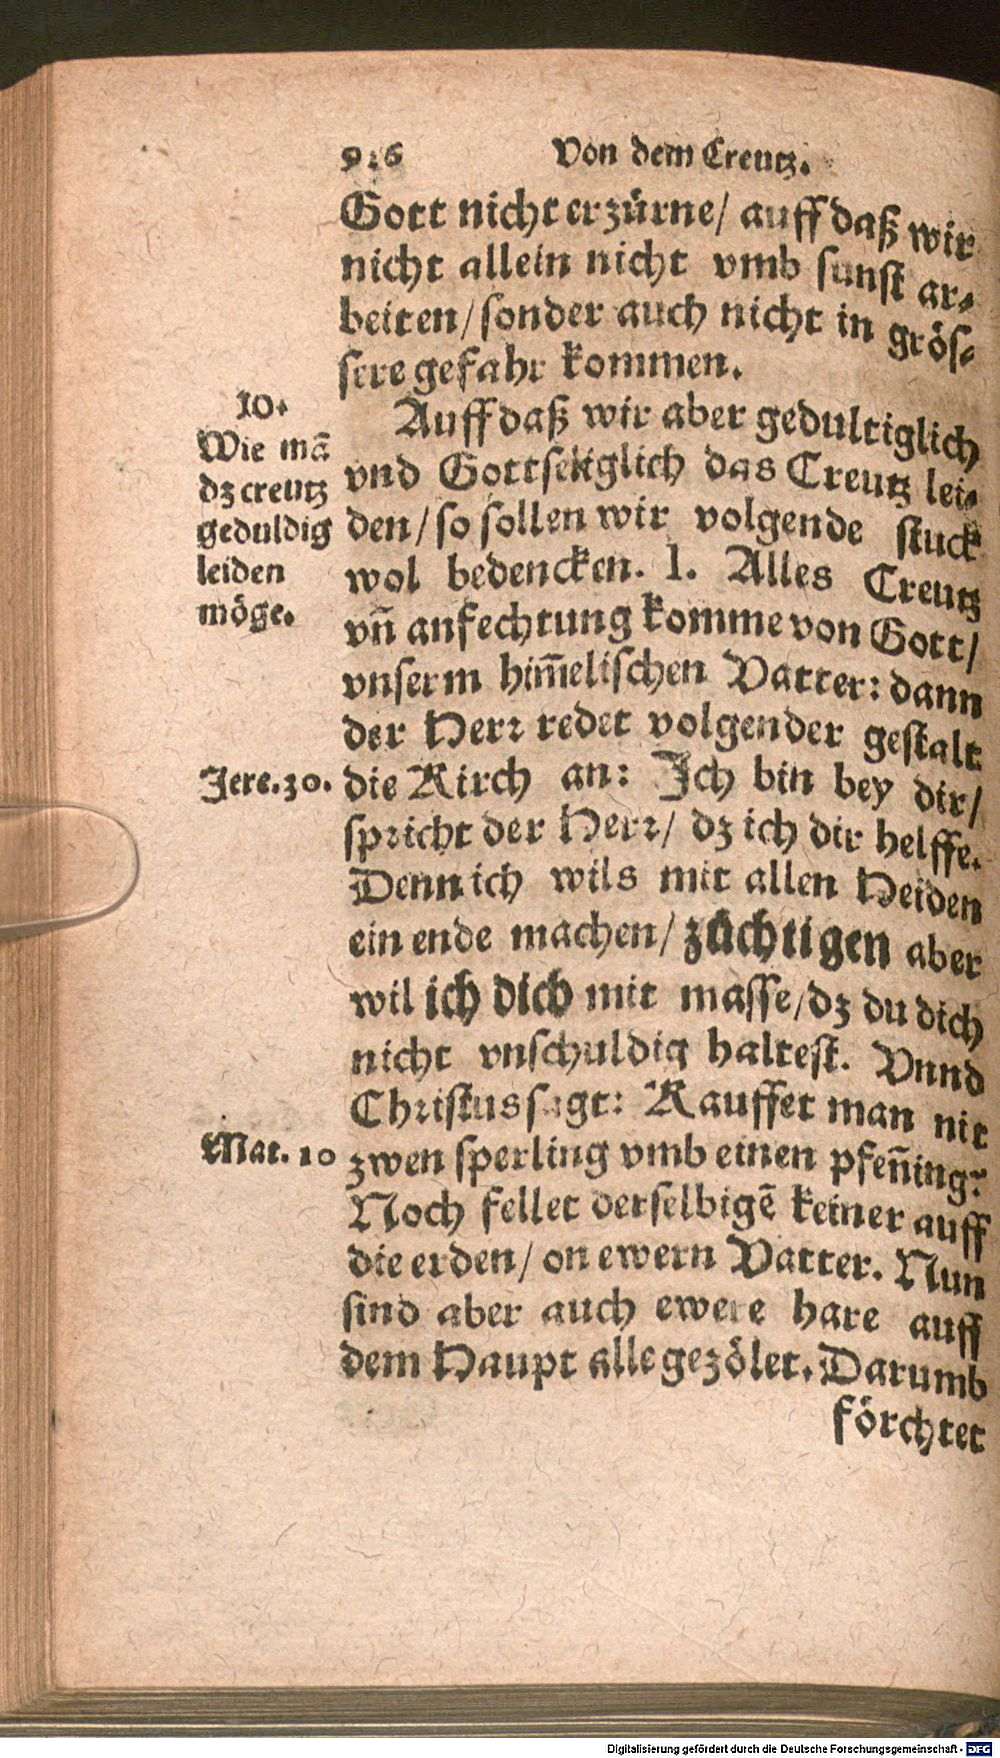 916 Von dem Creutz.
Gott nicht erzürne/ auff daß wir
nicht allein nicht vmb sunst ar-
beiten/ sonder auch nicht in grös-
sere gefahr kommen.
10.
Wie mā
dz creutz
geduldig
leiden
möge.
Auff daß wir aber gedultiglich
vnd Gottseliglich das Creutz lei-
den/ so sollen wir volgende stuck
wol bedencken. 1. Alles Creutz
vn̄ anfechtung komme von Gott/
vnserm him̄elischen Vatter: dann
der Herr redet volgender gestalt
Jere. 30.
die Kirch an: Ich bin bey dir/
spricht der Herr/ dz ich dir helffe.
Denn ich wils mit allen Heiden
ein ende machen/ züchtigen aber
wil ich dich mit masse/ dz du dich
nicht vnschuldig haltest. Vnnd
Christus sagt: Kauffet man nit
Mat. 10
zwen sperling vmb einen pfen̄ing?
Noch fellet derselbigē keiner auff
die erden/ on ewern Vatter. Nun
sind aber auch ewere hare auff
dem Haupt alle gezölet. Darumb
förchtet
Digitalisierung gefördert durch die Deutsche Forschungsgemeinschaft - DFG